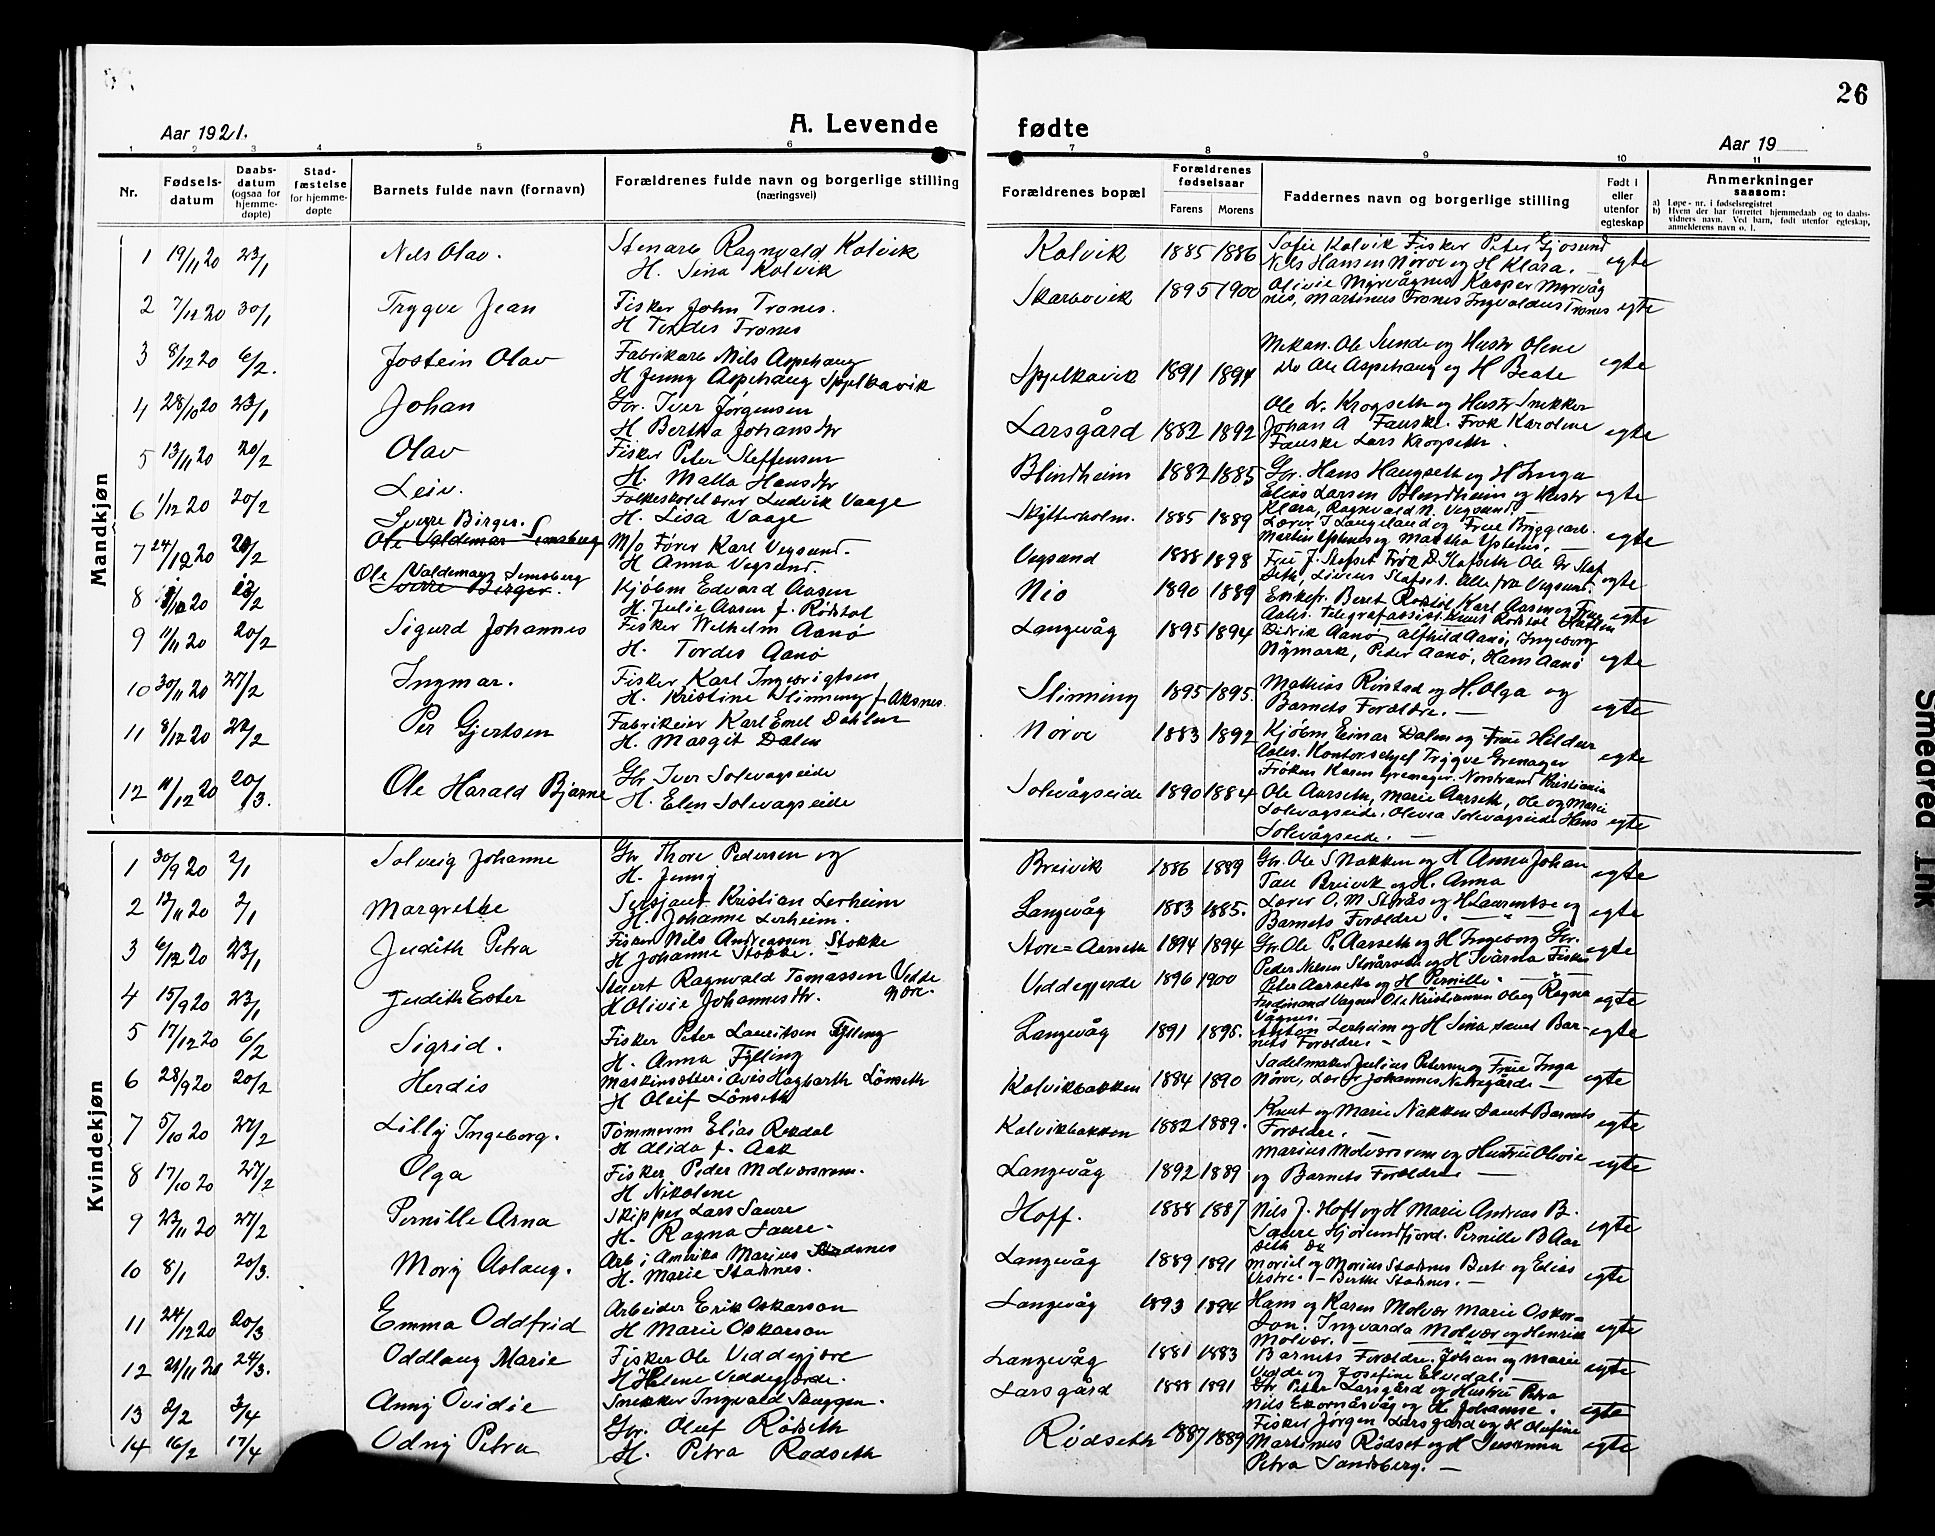 26
Aar 1921.
A. Levende fødte
Aar 19
1 2 3 4 5 6 7 8 9 10 11
Nr.
Fødsels-datum
Daabs-datum (ogsaa for hjemme-døpte)
Stad-fæstelse for hjemme-døpte
Barnets fulde navn (fornavn)
Forældrenes fulde navn og borgerlige stilling (næringsvei)
Forældrenes bopæl
Forældrenes fødselsaar
Farens Morens
Faddernes navn og borgerlig stilling
Født i eller utenfor egteskap
Anmerkninger saasom:
a) Løpe-nr. i fødselsregistret
b) Hvem der har forrettet hjemmedaab og to daabs-vidners navn. Ved barn, født utenfor egteskap, anmelderens navn o. l.
Mandkjøn
1 19/11 20 23/1 Nils Olav. Stenarb Ragnvald Kolvik Kolvik 1885 1886 Sofie Kolvik Fisker Peter Gjøsund egte
H. Sina Kolvik Nils Hansen Nørve og H Klara.
2 7/12 20 30/1 Trygve Jean Fisker John Trones. Skarbøvik 1895 1900 Olivie Myrvågnes Kasper Myrvåg egte
Trones nes, Martinus Trones Ingvaldus Trones
3 8/12 20 6/2. Jostein Olav Fabrikarb Nils Aspehaug Spjelkavik 1891 1894 Mekan. Ole Sunde og Hustr Olene egte
H Jenny Aspehaug Spjelkavik Ole Aspehaug og H Beate
4 28/10 20 23/1 Johan Gbr. Iver Jørgensen Larsgård 1882 1892 Ole Kr. Krogseth og Hustr Snekker egte
H Bertha Johansdtr Johan A Fauske. Frøk Karoline
Fauske Lars Krogseth.
5 13/11 20 20/2 Olav Fisker Peter Steffensen Blindheim 1882 1885 Gbr. Hans Haugseth og H Inga egte
H. Malla Hansdtr Elias Larsen Blindheim og Hustr
6 1/12 20 20/2 Leiv. Folkeskolelærer Ludvik Vaage Skytterholm. 1885 1889 Klara, Ragnvald N. Vegsund egte
H. Lisa Vaage Lærer J Langeland og Frue
Sverre Birger.
7 24/12 20 20/2 Ole Valdemar M/o Fører Karl Vegsund. Vegsund 1888 1898 egte
H Anna Vegsund. alle fra Vegsund.
Ole Valdemar
8 20 Sverre Birger. Kjøbm Edvard Aasen Nio 1890 1889 Beret Karl Aasen og Frue egte
H. Julie Aasen f. Rødstol
9 11/11 20 20/2 Sigurd Johannes Fisker Wilhelm Aanø Langevåg 1895 1894 Didrik Aanø Alfhild Aanø, Ingeborg egte
H. Tordes Aanø Nymark, Peter Aanø, Hans Aanø
10 30/11 20 27/2 Ingmar. Fisker Karl Ingebrigtsen Slinning 1895 1895. Mathias Rinstad og H. Olga og egte
H. Kristine Slinning f Aksnes. Barnets Forældre.
11 8/12 20 Per Gjertsen Fabrikeier Karl Emil Dahlen Nørve 1883 1892 Kjøbm Einar Dalen og Frue Hildur egte
H. Margit Dalen Aales. Kontorchef Trygve Grenager
Frøken Karen Grenager. Norstrand Kristiania
12 11/12 20 20/3. Ole Harald Bjarne Gbr Iver Solevagseide Solevågseide 1890 1884 Ole Aarseth, Marie Aarseth, Ole og Marie egte
H. Elen Solevagseide Solevagseide. Olevia Solevagseide Hans
Solevågseide.
Kvindekjøn
1 30/9 20 2/1 Solveig Johanne Gbr Thore Pedersen og Breivik 1886 1889 Gbr. Ole S Nakken og H Anna Johan egte
H. Jenny Breivik og H. Anna
2 20 2/1 Margrethe Sersjant Kristian Lerheim Langevåg 1883 1885. Lærer O. M og H Laurentse og egte
H. Johanne Lerheim. Barnets Forældre.
3 6/12 20 23/1 Judith Petra Fisker Nils Andreassen Stokke Store=Aarseth 1894 1894 Gbr. Ole P. Aarseth og H Ingeborg Gbr. egte
H Johanne Stokke. Peder Nilsen og H Fisker
4 15/9 20 23/1 Judith Ester Ragnvald Tomassen Vedde Veddegjerde 1896 1900 Peter Aarseth og H Pernille egte
H Olivie Johannesdtr. Ferdinand Vagnes Ole Kristiansen Ragna
Vågnes.
5 17/12 20 6/2 Sigrid. Fisker Peter Lauritsen Fylling Langevåg 1891 1895. Anton Lerheim og H Sina samt Bar- egte
H. Anna Fylling nets Forældre.
6 28/9 20 20/2 Herdis Hagbarth Lønseth Kolvikbakken 1884 1890 Sadelmaker Julius Petersen og Frue Inga egte
H Oleif Lønseth Nørve, Lærer Johannes
7 5/10 20 27/2 Lilly Ingeborg. Tømmerm Elias Rekdal Kolvikbakken 1882 1889. Knut og Marie Nakken samt Barnets egte
H Alida f. Aak Forældre.
8 17/10 20 27/2 Olga Fisker Peder Molværsrem. Langevåg 1892 1889 Marius Molværsrem og Hustru Olivie egte
H Nikoline og Barnets Forældre
9 23/11 20 27/2 Pernille Arna Skipper Lars Saure Hoff. 1888 1887 Nils J. Hoff og H Marie Andreas B. egte
H. Ragna Saure. Saure Hjørundfjord. Pernille B Aar
seth
10 8/1 20/3. Mory Aslaug. Arb i Amerika Marius Stadsnes Langevåg 1889 1891 og Marius Stadsnes Berte og Elias egte
H. Marie Stadsnes. Berthe Stadsnes.
11 24/12 20 20/3 Emma Oddfrid Arbeider Erik Oskarson Langevåg 1893 1894 Hans og Karen Molvær Marie Oskar= egte
H Marie Oskarson son. Ingvarda Molvær og Henrik
Molvær.
12 21/11 20 24/3. Oddlaug Marie Fisker Ole Veddegjære Langevåg 1881 1883 Barnets Forældre. Johan og Marie egte
H Helene Veddegjærde. Vedde og Josefine Elvedal.
13 2/2 3/4 Anny Ovidie Snekker Ingvald Skuggen. Larsgård 1888 1891 Gbr Peter Larsgård og Hustru Petra egte
Nils Ekornåsvåg og H Johanne.
14 16/2 17/4 Odny Petra Gbr. Oluf Rødseth Rødseth 1887 1889 Fisker Jørgen Larsgård og H Olufine egte
H. Petra Rødseth Martinus Rødset og H Susanna
Petra Sandsberg.
Smeared Ink